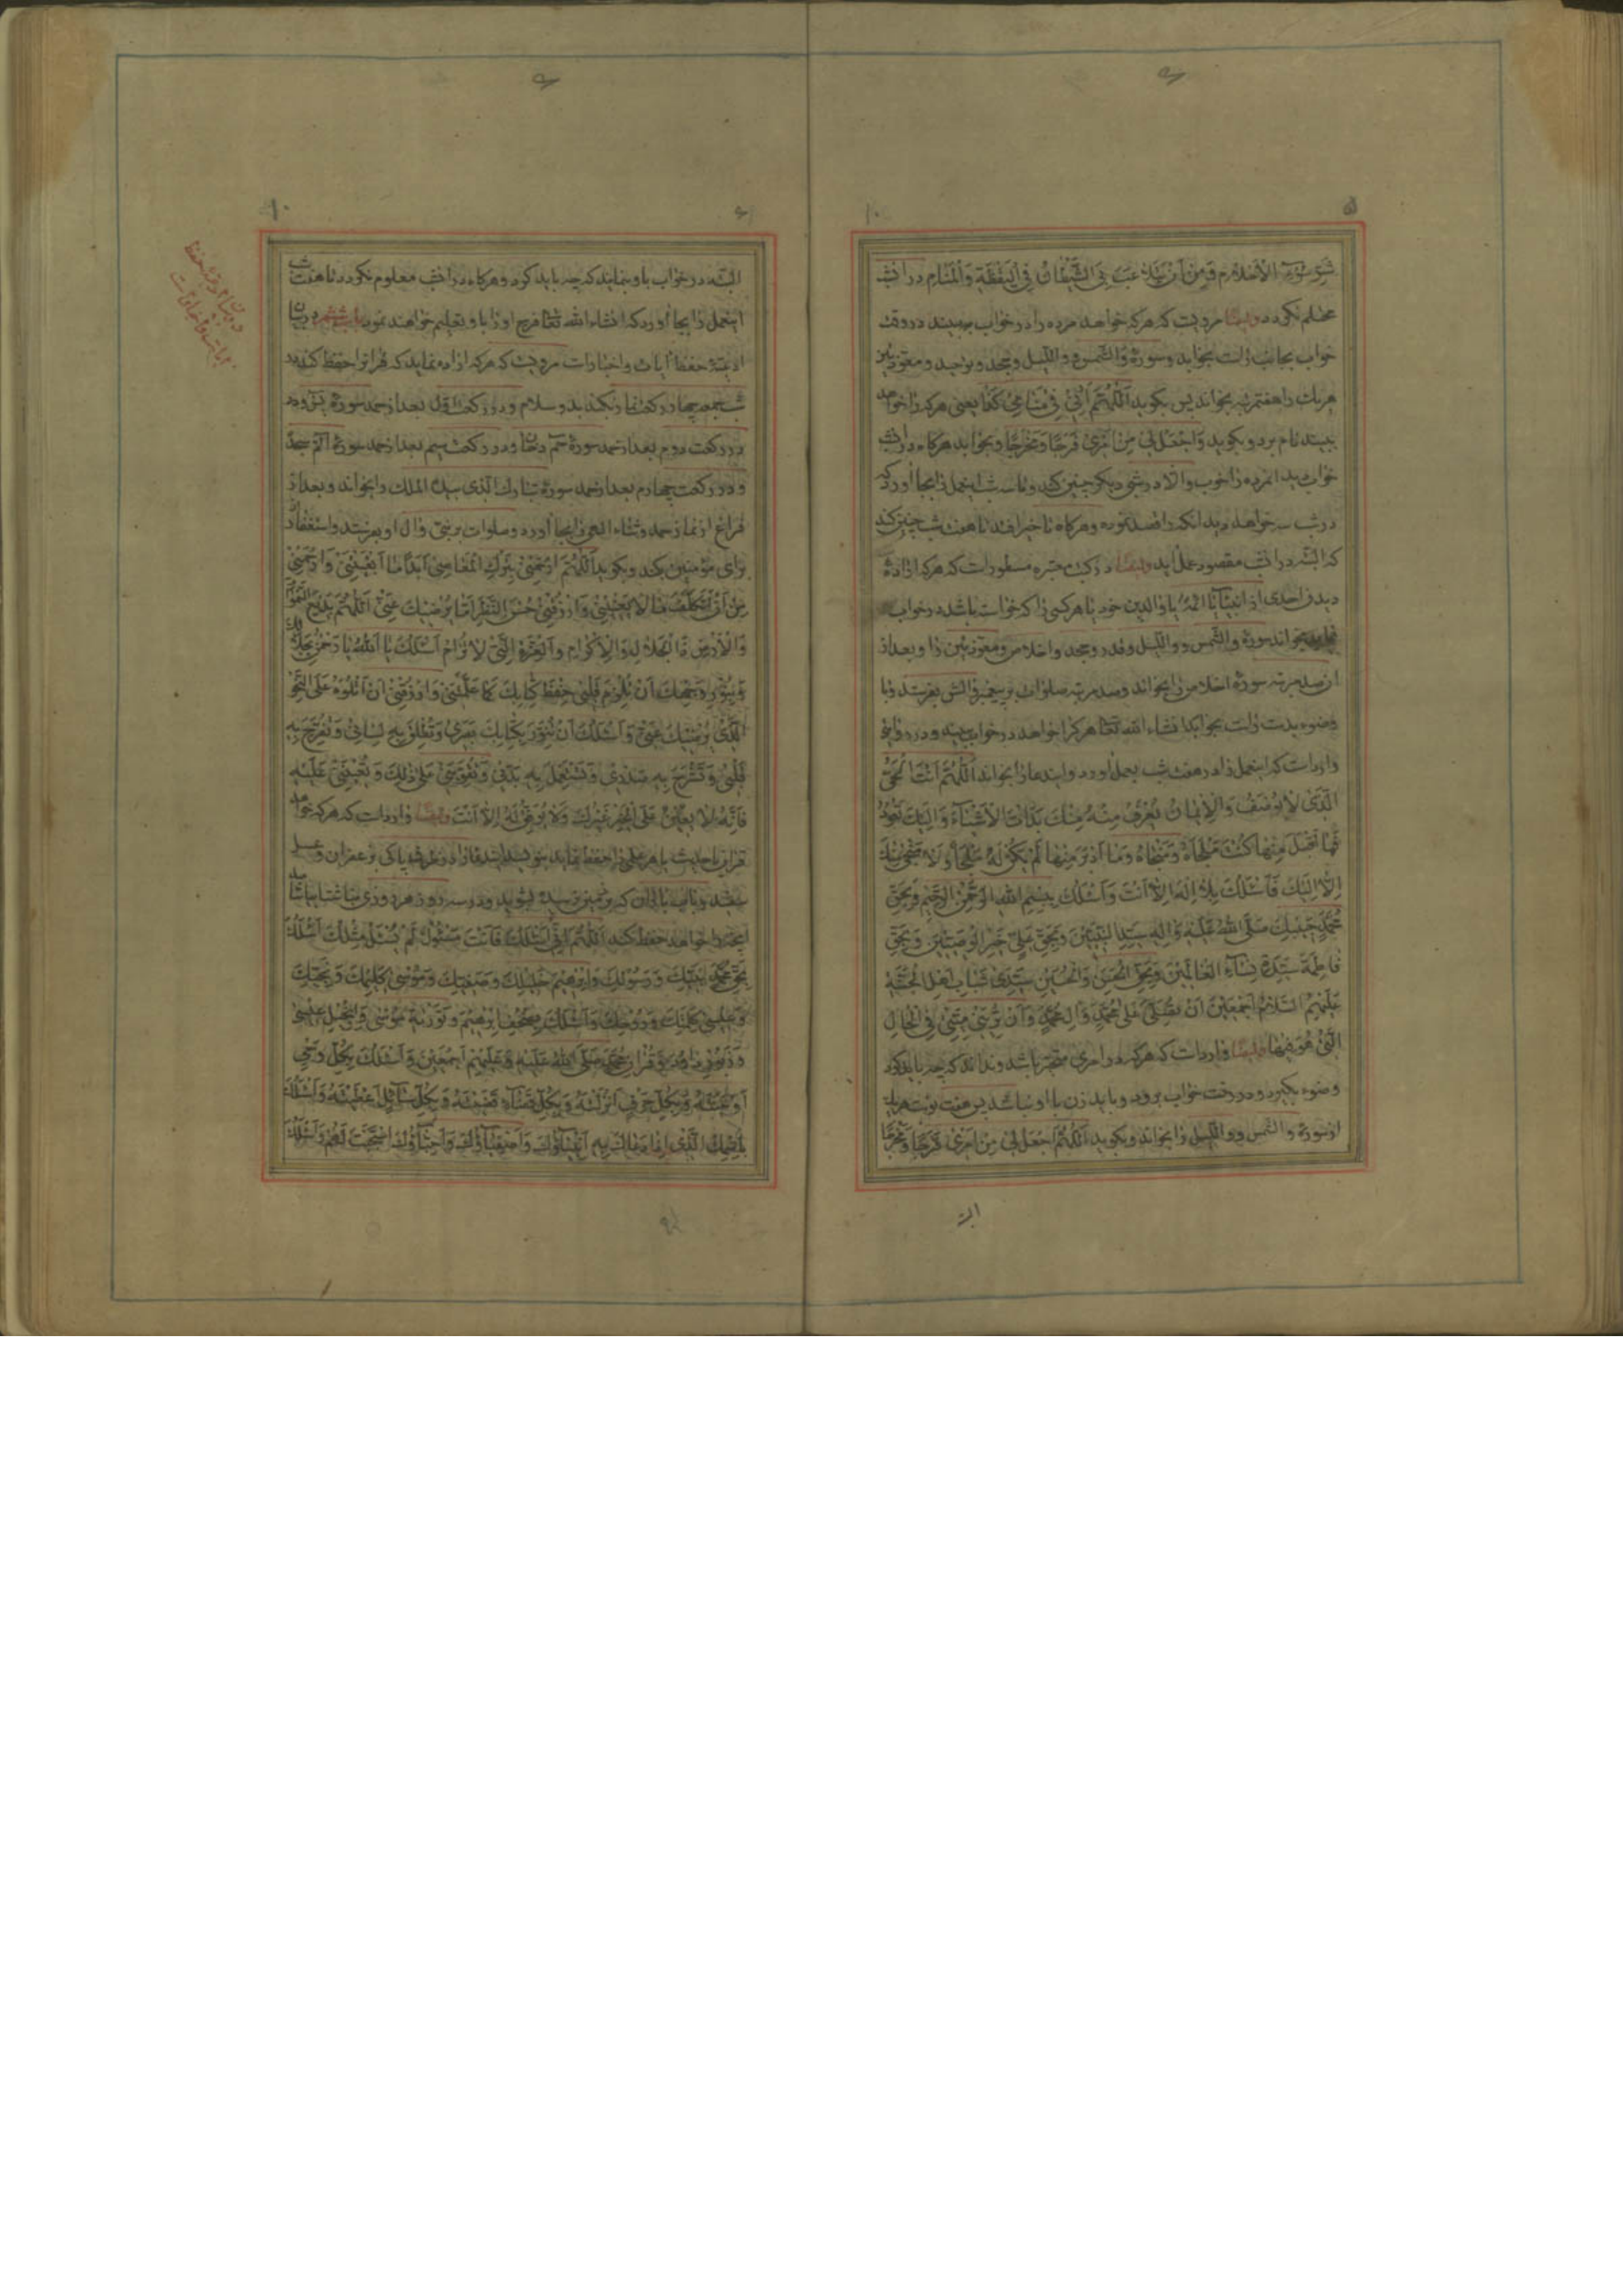 الاحلام و من ان یتلاعب بی الشیطان فی الیقظة والمنام در انشب
محتلم نگردد وایضا مرویست که هرکه خواهد مرده را در خواب ببیند در وقت
خواب بجانب راست بخوابد و سورهٔ والشمس و واللیل و جحد و توحید و معوذتین
هر یک را هفتمرتبه بخواند پس بگوید اللّهمّ ارنی فی منامی کذا یعنی هرکه را خواهد
ببیند نام برد و بگوید واجعل لی من امری فرجا و مخرجا و بخوابد هرگاه در انشب
خواب دید انمرده را خوب والا در شب دیگر چنین کند و تا سه شب اینعمل را بجا آورد که
در شب سه خواهد دید انکه را قصد نموده و هرگاه تاخیر افتد تا هفت شب چنین کند
که البتّه در انشب مقصود بعمل آید وایضا در کتب معتبره مسطور است که هرکه ارادهٔ
دیدن احدی از انبیا یا ائمه یا والدین خود یا هر کسی را که خواسته باشد در خواب
نماید بخواند سورهٔ والشّمس و واللیل و قدر و جحد و اخلاص و معوّذتین را و بعد از
ان صد مرتبه سورهٔ اخلاص را بخواند و صد مرتبه صلوات بر پیغمبر و الش بفرستد و با
وضو بدست راست بخوابد انشاء الله تعا هرکرا خواهد در خواب بیند و در روایتی
وارد است که اینعمل را در هفت شب بعمل اورد و ایندعا را بخواند اللّهمّ انت الحیّ
الّذی لا یوصف والایمان یعرف منه منک بدات الاشیاء والیک تعود
فما اقبل منها کنت ملجاه و منجاه وما ادبر منها لم یکن له ملجأ ولا منجی منک
الا الیک فاسئلک بلا اله الا انت واسئلک ببسم الله الرّحمن الرّحیم وبحق
محمّد حبیبک صلّی الله علیه و اله سیّد النبیین وبحقّ علیّ خیر الوصیّین وبحقّ
فاطمة سیّدة نساء العالمین وبحقّ الحسن والحسین سیّدی شباب اهل الجنّة
علیهم السّلام اجمعین ان تصلّی علی محمّد وال محمّد وان ترینی میّتی فی الحال
الّتی هو فیها وایضا وارد است که هرکه در امری متحیّر باشد و نداند که چه باید کرد
وضو بگیرد و در رخت خواب برود و باید زن با او نباشد پس هفت نوبت هر یک
از سورهٔ والشّمس و واللّیل را بخواند و بگوید اللّهمّ اجعل لی من امری فرجا و مخرجا
البتّه در خواب باو بنمایند که چه باید کرد و هرگاه در انشب معلوم نگردد تا هفت شب
اینعمل را بجا آورد که انشاء الله تعا فرج او را باو تعلیم خواهند نمود باب ششم در بیان
ادعیهٔ حفظ ایات و اخبار است مرویست که هرکه اراده نماید که قرانرا حفظ کند در
شب جمعه چهار رکعت نماز بکند بدو سلام و در رکعت اوّل بعد از حمد سورهٔ یس و در
رکعت دوم بعد از حمد سورهٔ حم دخان و در رکعت سیم بعد از حمد سورهٔ الم سجده
و در رکعت چهارم بعد از حمد سورهٔ تبارک الّذی بیده الملک را بخواند و بعد از
فراغ از نماز حمد و ثناء الهی را بجا آورد و صلوات بر نبی و ال او بفرستد و استغفار
برای مؤمنین بکند و بگوید اللّهمّ ارحمنی بترک المعاصی ابدا ما ابقیتنی وارحمنی
من ان اتکلّف ما لا یعنینی وارزقنی حسن النّظر فیما یرضیک عنّی اللّهمّ بدیع السموات
والارض ذا الجلال والاکرام والعزّة الّتی لا ترام اسئلک یا الله یا رحمن بجلالک
وبنور وجهک ان تلزم قلبی حفظ کتابک کما علّمتنی وارزقنی ان اتلوه علی النّحو
الّذی یرضیک عنّی واسئلک ان تنوّر بکتابک بصری وتطلق به لسانی وتفرّج به
قلبی وتشرح به صدری وتستعمل به بدنی وتقوّینی علی ذلک وتعیننی علیه
فانّه لا یعین علی الخیر غیرک ولا یوفّق له الا انت وایضا وارد است که هرکه خواهد
قران یا حدیث یا هر علمی را حفظ نماید بنویسد ایندعا را در ظرف پاکی بزعفران و عسل
اینچه را خواهد حفظ کند اللّهمّ انّی اسئلک فانت مسئول لم یسئل مثلک اسئلک
بحقّ محمّد نبیّک ورسولک وابرهیم خلیلک وصفیّک وموسی کلیمک ونجیّک
وعیسی کلمتک وروحک واسئلک بصحف ابرهیم وتوریة موسی وانجیل عیسی
وزبور داود وقران محمّد صلّی الله علیه وعلیهم اجمعین واسئلک بکلّ وحی
اوحیته وبکلّ حرف انزلته وبکلّ قضاء قضیته وبکلّ سائل اعطیته واسئلک